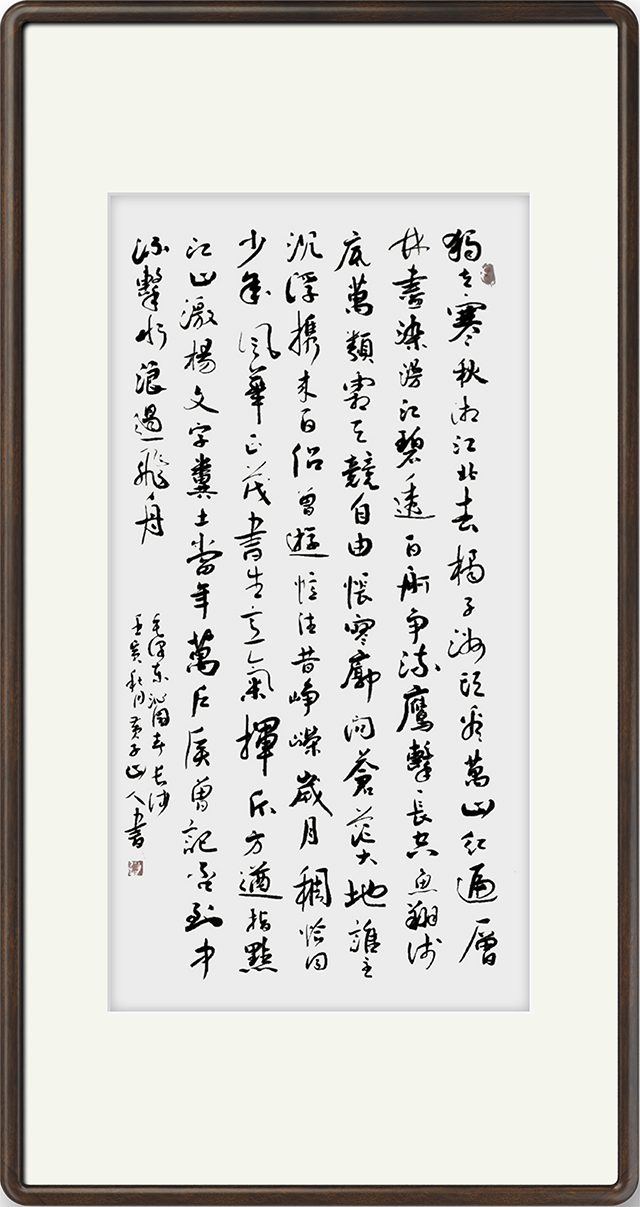 獨立寒秋湘江北去橘子洲頭看萬山紅遍層
林盡染漫江碧透百舸爭流鷹擊長空魚翔淺
底萬類霜天競自由悵寥廓問蒼茫大地誰主
沉浮携來百侶曾遊憶往昔崢嶸歲月稠恰同
少年風華正茂書生意氣揮斥方遒指點
江山激揚文字糞土當年萬戶侯曾記否到中
流擊水浪遏飛舟
毛澤東沁園春長沙
壬寅秋月黄子山人書